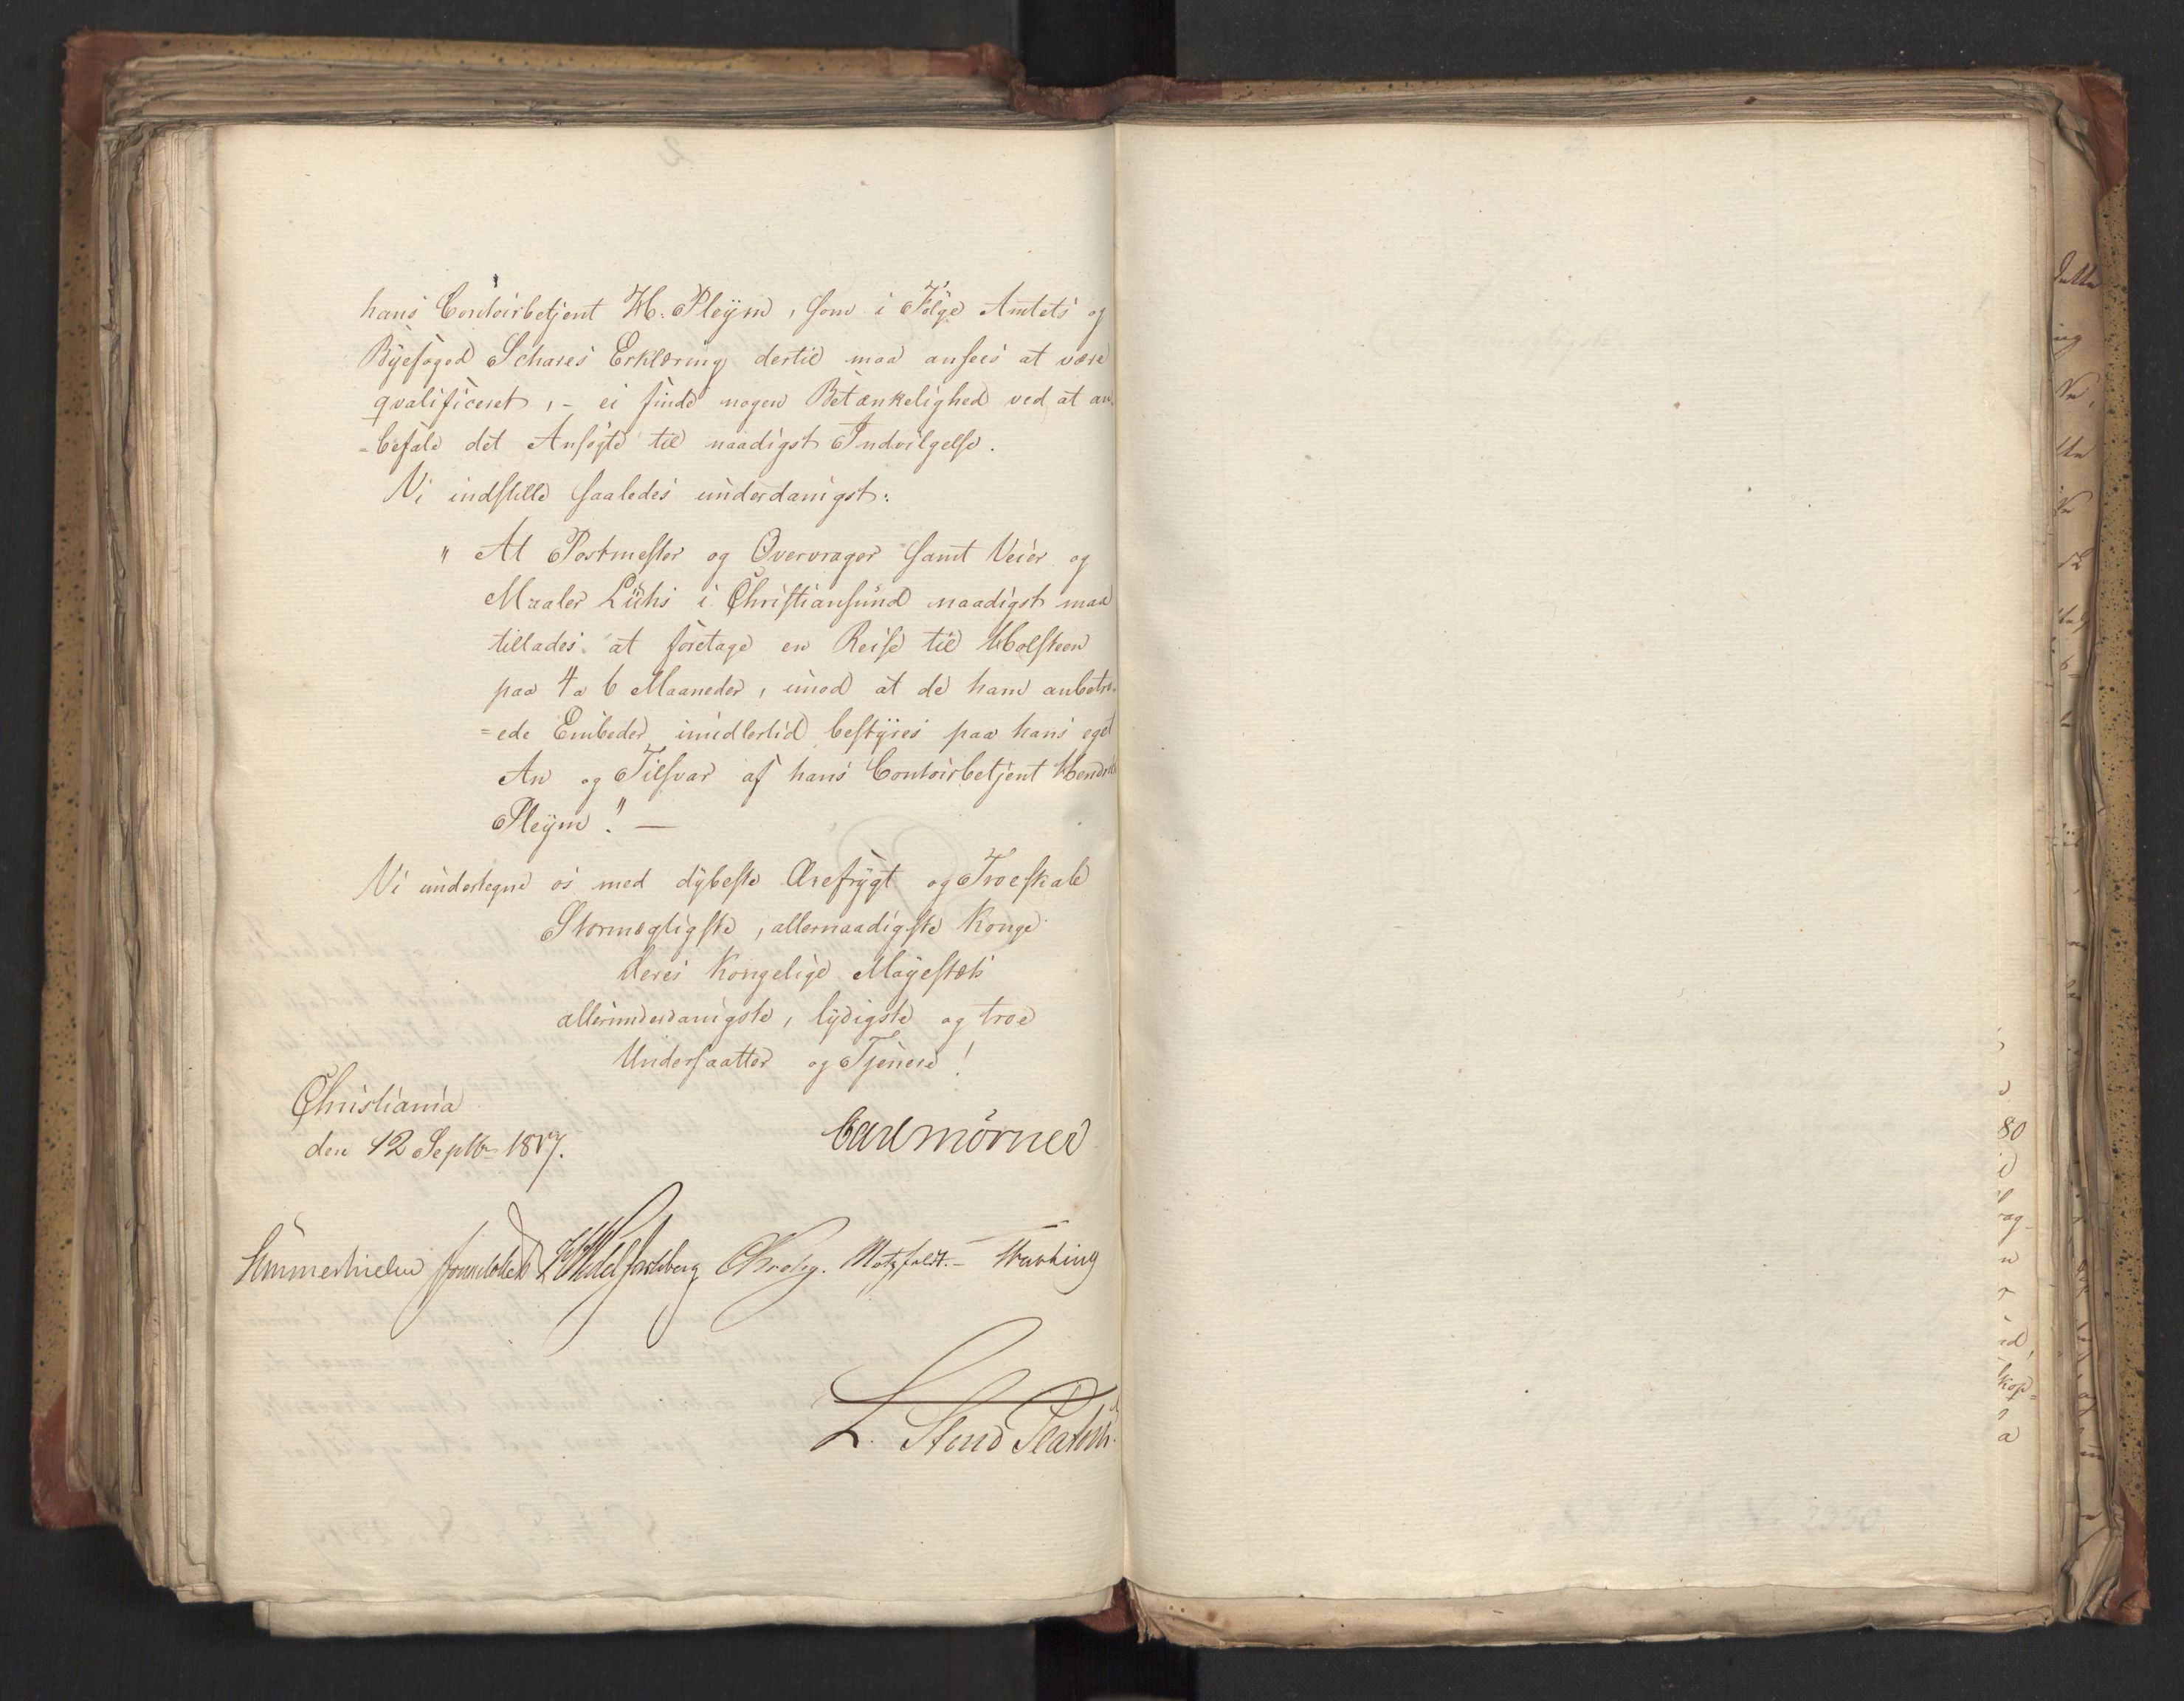 hans Contoirbetjent H. Pleÿm, som i Følge Amtets og
Bÿefoged Schares Erklæring dertil maa ansees at være
qvalificeret, - ei finde nogen Betænkelighed ved at an-
=befale det Ansøgte til naadigst Indvilgelse.
Vi indstille saaledes underdanigst:
" At Postmester og Overvrager samt Veier og
Maaler Lühs i Christiansund naadigst maa
tillades at foretage en Reise til Holsteen
paa 4 a 6 Maaneder, imod at de ham anbetro-
=ede Embeder imidlertid bestÿres paa hans eget
An og Tilsvar af hans Contoirbetjent Hendrik
Pleÿm." —
Vi undertegne os med dÿbeste Ærefrÿgt og Troeskab
Stormægtigste, allernaadigste Konge
Deres Kongelige Mayestæts
allerunderdanigste, lÿdigste og troe
Undersaatter og Tjenere!
Christiania
den 12 Septbr 1817.
Carl Mörner
Hummerhielm Sommerhielm Wedel Jarlsberg CKrohg. Motzfeldt. - 
L. Stoud Platou
80